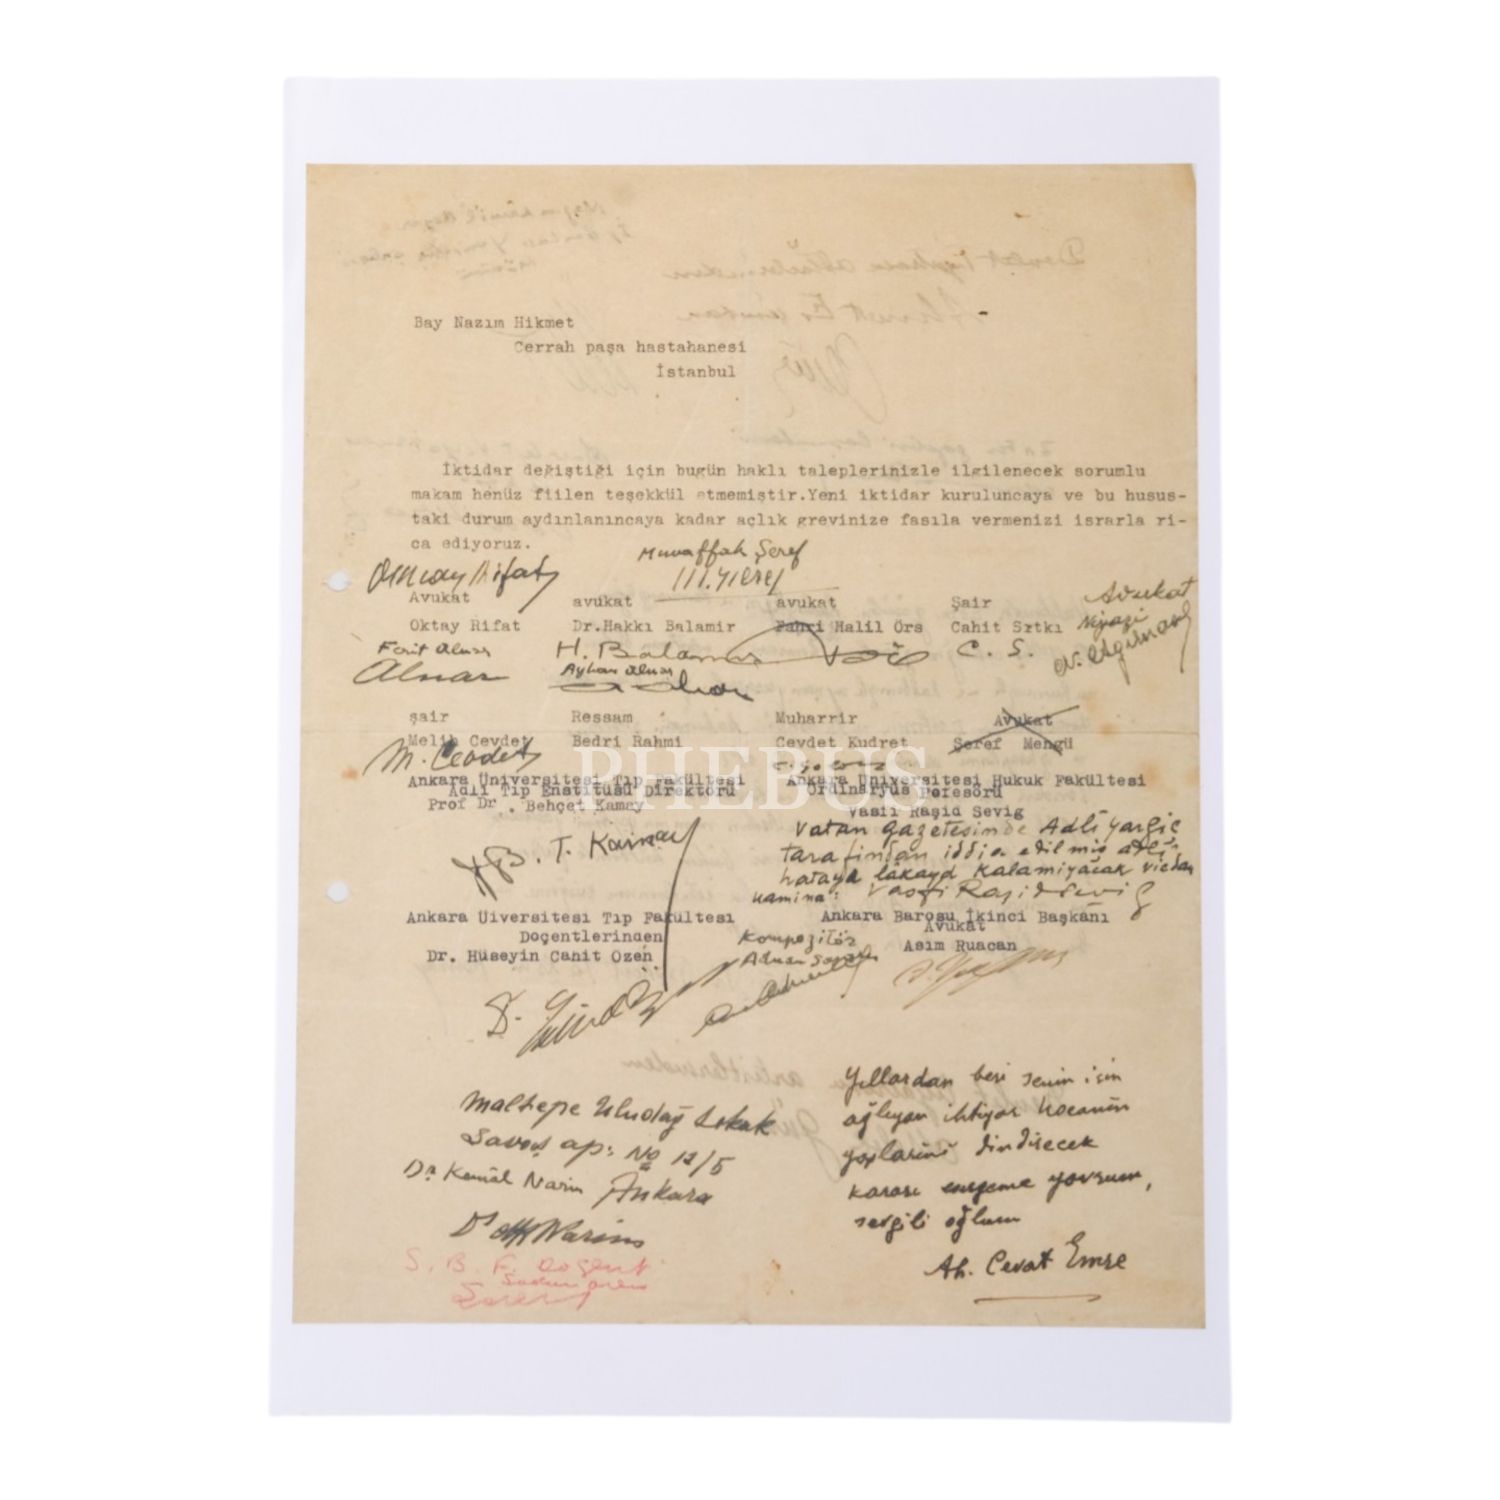 Bay Nazım Hikmet
Cerrah paşa hastahanesi
İstanbul
İktidar değiştiği için bugün haklı taleplerinizle ilgilenecek sorumlu
makam henüz fiilen teşekkül etmemiştir.Yeni iktidar kuruluncaya ve bu husus-
taki durum aydınlanıncaya kadar açlık grevinize fasıla vermenizi israrla ri-
ca ediyoruz.
Muvaffak Şeref
Avukat avukat avukat Şair Avukat
Oktay Rifat Dr.Hakkı Balamir Fahri Halil Örs Cahit Sıtkı Niyazi
N. Ağırnaslı
Ferit Alnar H. Balamir C. S.
Alnar Ayhan Alnar
şair Ressam Muharrir Avukat
Melih Cevdet Bedri Rahmi Cevdet Kudret Şeref Mengü
M. Cevdet
PHEBUS
Ankara Üniversitesi Tıp Fakültesi Ankara Üniversitesi Hukuk Fakültesi
Adli Tıp Enstitüsü Direktörü Ordinaryüs Poresörü
Prof Dr . Behçet Kamay Vasfi Raşid Sevig
B. T. Kamay
Vatan gazetesinde Adlî yargıç
tarafından iddia edilmiş adlî
hataya lâkayd kalamıyacak vicdan
namına: Vasfi Raşid Sevig
Ankara Üiversitesi Tıp Fakültesi Ankara Barosu İkinci Başkanı
Doçentlerinden Avukat
Dr. Hüseyin Cahit Özen Asım Ruacan
Kompozitör
Adnan Saygun
Maltepe Uludağ sokak
Savaş ap: No 12/5
Dr Kemâl Narin Ankara
S. B. F. Doçent
Sadun Aren
Yıllardan beri senin için
ağlıyan ihtiyar hocanın
yaşlarını dindirecek
kararı esirgeme yavrum,
sevgili oğlum
Ah. Cevat Emre